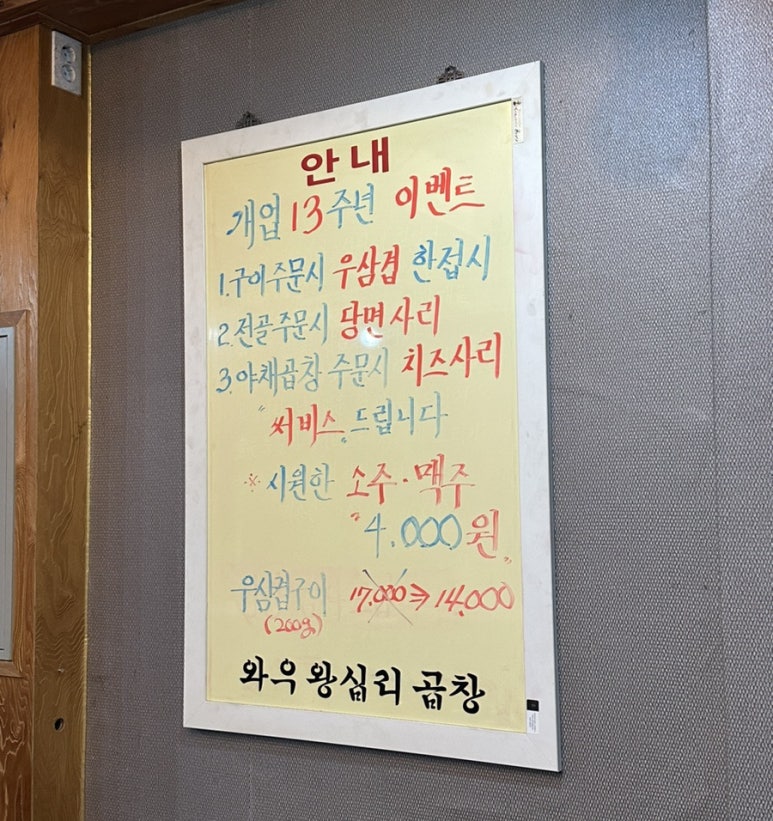 안내
개업 13주년 이벤트
1. 구이주문시 우삼겹 한접시
2. 전골주문시 당면사리
3. 야채곱창 주문시 치즈사리
"써비스" 드립니다
※ 시원한 소주·맥주
"4.000원"
우삼겹구이 17.000 ⇒ 14.000
(200g)
와우 왕십리 곱창